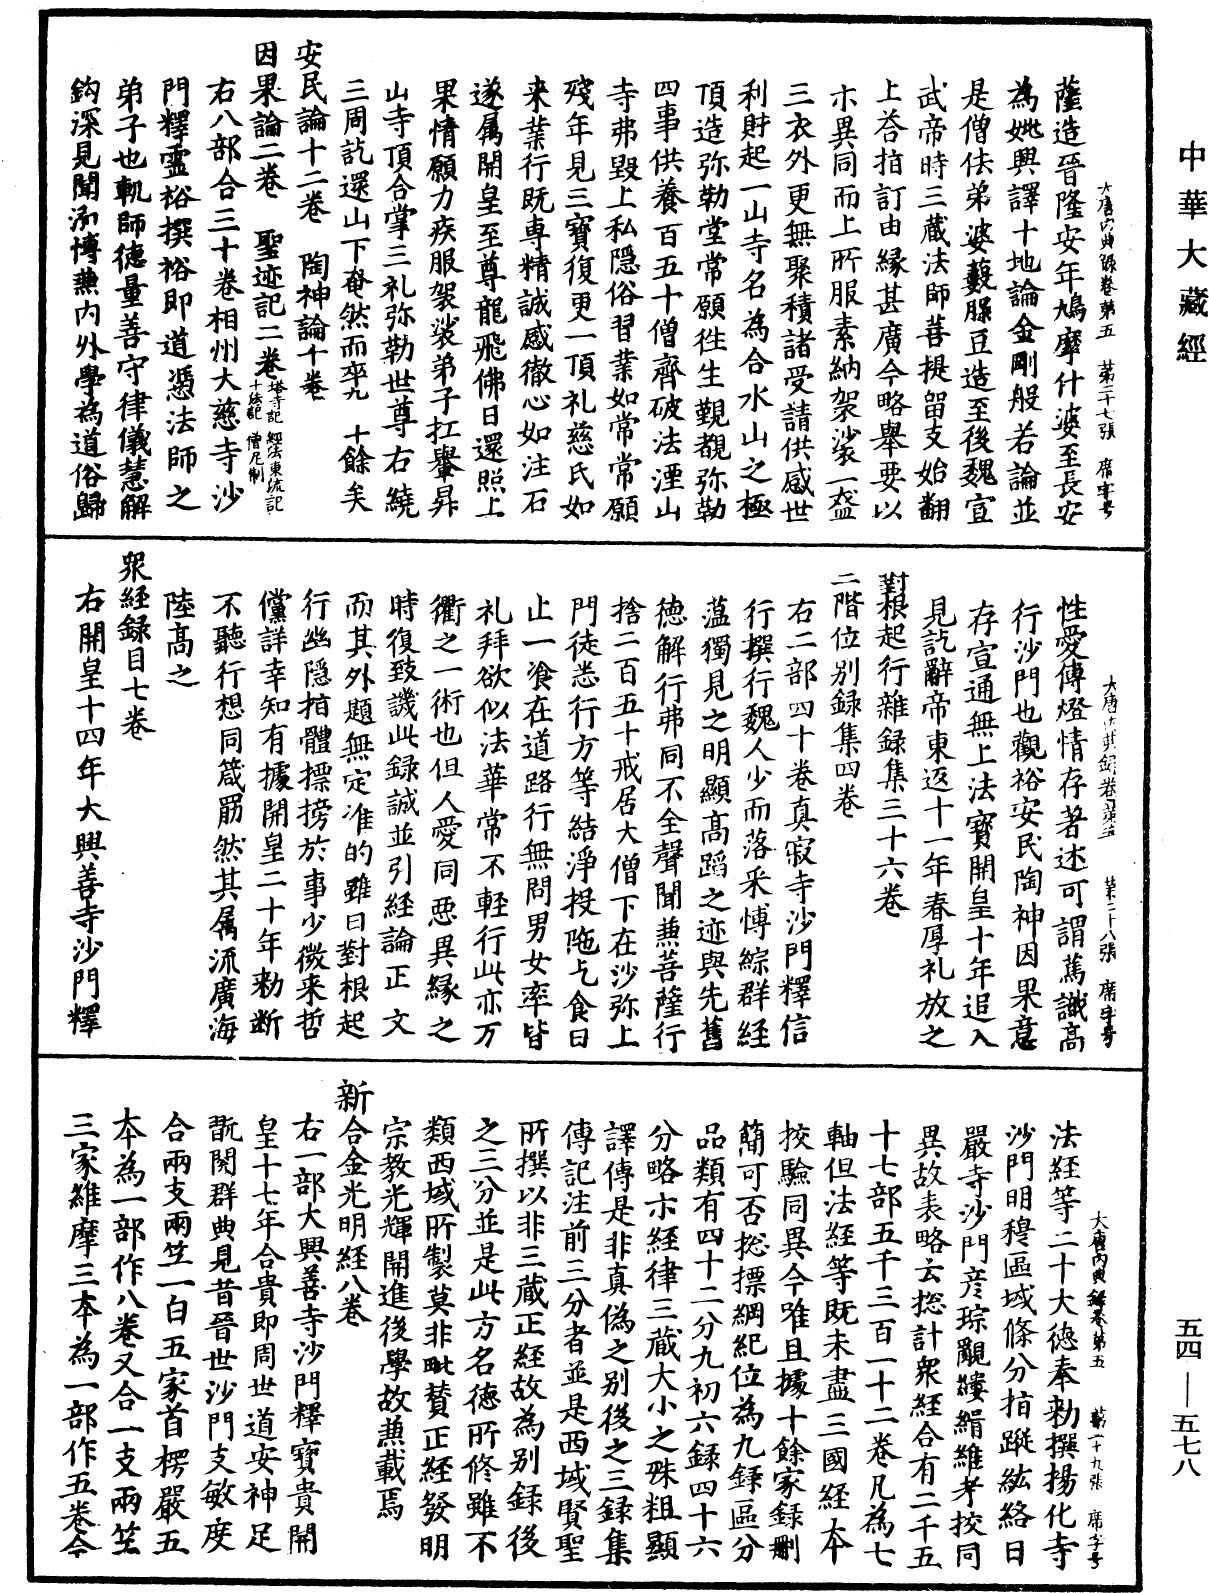 中華大藏經
大唐內典錄卷第五　第二十七張　席字号
薩造晉隆安年鳩摩什婆至長安
為姚興譯十地論金剛般若論並
是僧佉弟婆藪腬豆造至後魏宣
武帝時三藏法師菩提留支始翻
上荅指訂由緣甚廣今略舉要以
示異同而上所服素納袈裟一盔
三衣外更無聚積諸受請供感世
利財起一山寺名為合水山之極
頂造弥勒堂常願徃生覲覩弥勒
四事供養百五十僧齊破法湮山
寺弗毀上私隱俗習業如常常願
殘年見三寶復更一頂礼慈氏如
来業行既専精誠感徹心如注石
遂属開皇至尊龍飛佛日還照上
果情願力疾服袈裟弟子扛轝昇
山寺頂合掌三礼弥勒世尊右繞
三周訖還山下奄然而卒九十餘矣
安民論十二卷　陶神論十卷
因果論二卷　聖迹記二卷塔寺記　經法東流記　十德記　僧尼制
右八部合三十卷相州大慈寺沙
門釋靈裕撰裕即道憑法師之
弟子也軌師德量善守律儀慧解
鈎深見聞弥博兼内外學為道俗歸
大唐內典錄卷第五　第二十八張　席字号
性愛傳燈情存著述可謂篤識高
行沙門也觀裕安民陶神因果意
存宣通無上法寶開皇十年追入
見訖辭帝東返十一年春厚礼放之
對根起行雜録集三十六卷
三階位別録集四卷
右二部四十卷真寂寺沙門釋信
行撰行魏人少而落采博綜群經
薀獨見之明顯高蹈之迹與先舊
德解行弗同不全聲聞兼菩薩行
捨二百五十戒居大僧下在沙弥上
門徒悉行方等結淨投陁乞食日
止一飡在道路行無問男女率皆
礼拜欲似法華常不輕行此亦万
衢之一術也但人愛同惡異緣之
時復致譏此録誠並引経論正文
而其外題無定准的雖曰對根起
行幽隱指體摽搒於事少微来哲
儻詳幸知有據開皇二十年勑断
不聽行想同箴勗然其属流廣海
陸高之
衆経録目七卷
右開皇十四年大興善寺沙門釋
大唐內典錄卷第五　第二十九張　席字号
法経等二十大德奉勑撰揚化寺
沙門明穆區域條分指蹤紘絡日
嚴寺沙門彦琮覼縷緝維考挍同
異故表略云揔計衆経合有二千五
十七部五千三百一十二卷凡為七
軸但法経等既未盡三國経本
挍驗同異今唯且據十餘家録刪
簡可否揔摽綱紀位為九録區分
品類有四十二分九初六録四十六
分略示経律三藏大小之殊粗顯
譯傳是非真偽之別後之三録集
傳記注前三分者並是西域賢聖
所撰以非三藏正経故為別録後
之三分並是此方名德所修雖不
類西域所製莫非毗賛正経發明
宗教光輝開進後學故兼載焉
新合金光明経八卷
右一部大興善寺沙門釋寶貴開
皇十七年合貴即周世道安神足
翫閱群典見昔晉世沙門支敏度
合兩支兩竺一白五家首楞嚴五
本為一部作八卷又合一支兩竺
三家維摩三本為一部作五卷今
五四——五七八